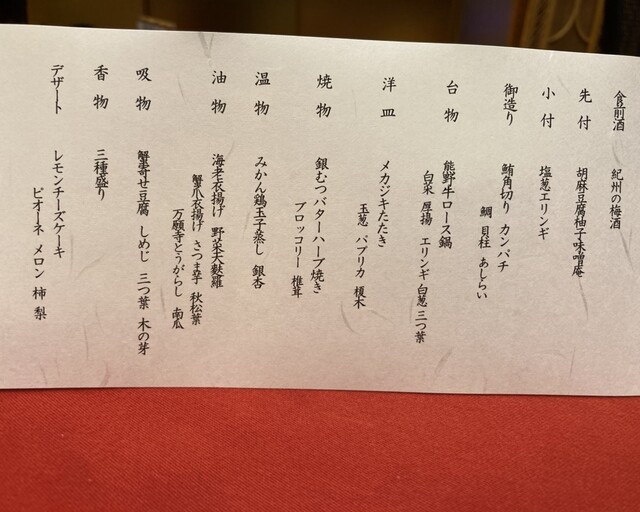 食前酒　紀州の梅酒
先付　胡麻豆腐柚子味噌庵
小付　塩葱エリンギ
御造り　鮪角切り　カンパチ
鯛　貝柱　あしらい
台物　熊野牛ロース鍋
白菜　厚揚　エリンギ　白葱　三つ葉
洋皿　メカジキたたき
玉葱　パプリカ　榎木
焼物　銀むつバターハーブ焼き
ブロッコリー　椎茸
温物　みかん鶏玉子蒸し　銀杏
油物　海老衣揚げ　野菜天麩羅
蟹爪衣揚げ　さつま芋　秋松葉
万願寺とうがらし　南瓜
吸物　蟹寄せ豆腐　しめじ　三つ葉　木の芽
香物　三種盛り
デザート　レモンチーズケーキ
ピオーネ　メロン　柿　梨